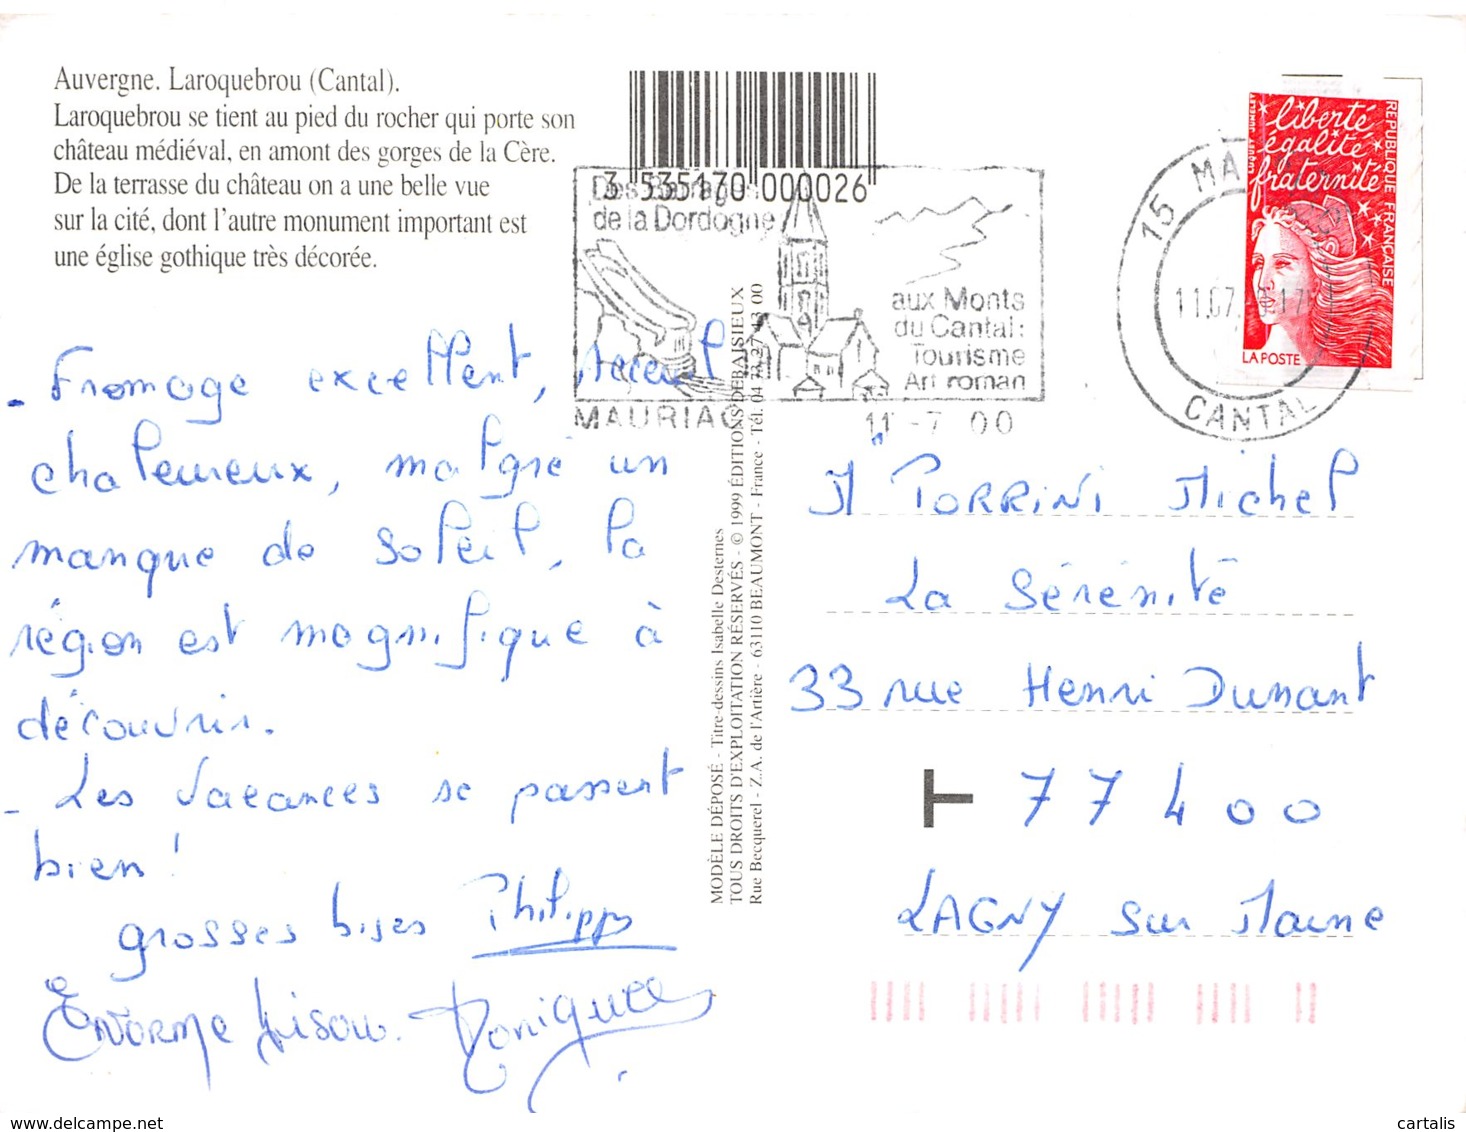 Auvergne. Laroquebrou (Cantal).
Laroquebrou se tient au pied du rocher qui porte son
château médiéval, en amont des gorges de la Cère.
De la terrasse du château on a une belle vue
sur la cité, dont l'autre monument important est
une église gothique très décorée.
3 535170 000026
de la Dordogne
aux Monts
du Cantal:
Tourisme
Art roman
MAURIAC 11-7 00
15 MA
11.07.
CANTAL
liberté
égalité
fraternité
RÉPUBLIQUE FRANÇAISE
LA POSTE
- Fromage excellent, accueil
chaleureux, malgré un
manque de soleil, la
région est magnifique à
découvrir.
- Les vacances se passent
bien !
grosses bises Philippe
Enorme bisou. Monique
MODÈLE DÉPOSÉ - Titre-dessins Isabelle Desternes
TOUS DROITS D'EXPLOITATION RÉSERVÉS - © 1999 ÉDITIONS DEBAISIEUX
Rue Becquerel - Z.A. de l'Artière - 63110 BEAUMONT - France - Tél. 04 73 27 43 00
M PORRINI Michel
La Sérénité
33 rue Henri Dunant
77400
LAGNY sur Marne
cartalis